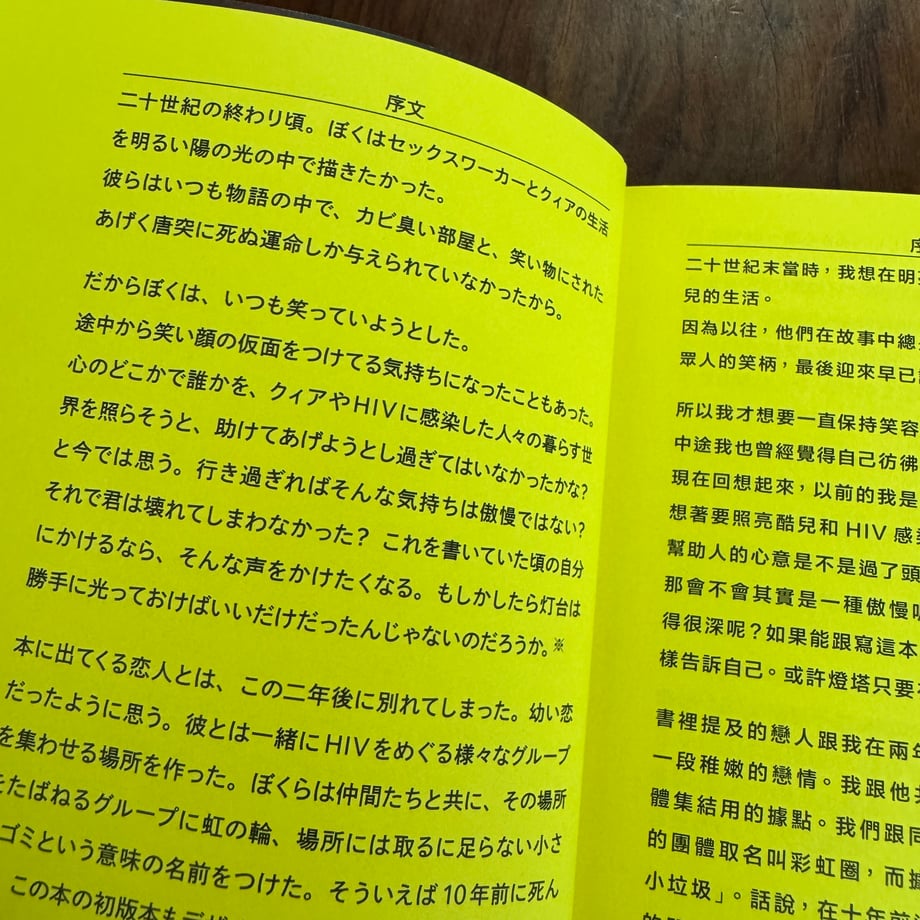 序文
二十世紀の終わり頃。ぼくはセックスワーカーとクィアの生活
を明るい陽の光の中で描きたかった。
彼らはいつも物語の中で、カビ臭い部屋と、笑い物にされた
あげく唐突に死ぬ運命しか与えられていなかったから。
だからぼくは、いつも笑っていようとした。
途中から笑い顔の仮面をつけてる気持ちになったこともあった。
心のどこかで誰かを、クィアやHIVに感染した人々の暮らす世
界を照らそうと、助けてあげようとし過ぎてはいなかったかな?
と今では思う。行き過ぎればそんな気持ちは傲慢ではない?
それで君は壊れてしまわなかった? これを書いていた頃の自分
にかけるなら、そんな声をかけたくなる。もしかしたら灯台は
勝手に光っておけばいいだけだったんじゃないのだろうか。※
本に出てくる恋人とは、この二年後に別れてしまった。幼い恋
だったように思う。彼とは一緒にHIVをめぐる様々なグループ
を集わせる場所を作った。ぼくらは仲間たちと共に、その場所
をたばねるグループに虹の輪、場所には取るに足らない小さ
ゴミという意味の名前をつけた。そういえば10年前に死ん
この本の初版本もデザ
序
二十世紀末當時，我想在明
兒的生活。
因為以往，他們在故事中總
眾人的笑柄，最後迎來早已
所以我才想要一直保持笑容
中途我也曾經覺得自己彷彿
現在回想起來，以前的我是
想著要照亮酷兒和 HIV 感
幫助人的心意是不是過了頭
那會不會其實是一種傲慢
得很深呢？如果能跟寫這本
樣告訴自己。或許燈塔只要
書裡提及的戀人跟我在兩年
一段稚嫩的戀情。我跟他
體集結用的據點。我們跟同
的團體取名叫彩虹圈，而
小垃圾」。話說，在十年前